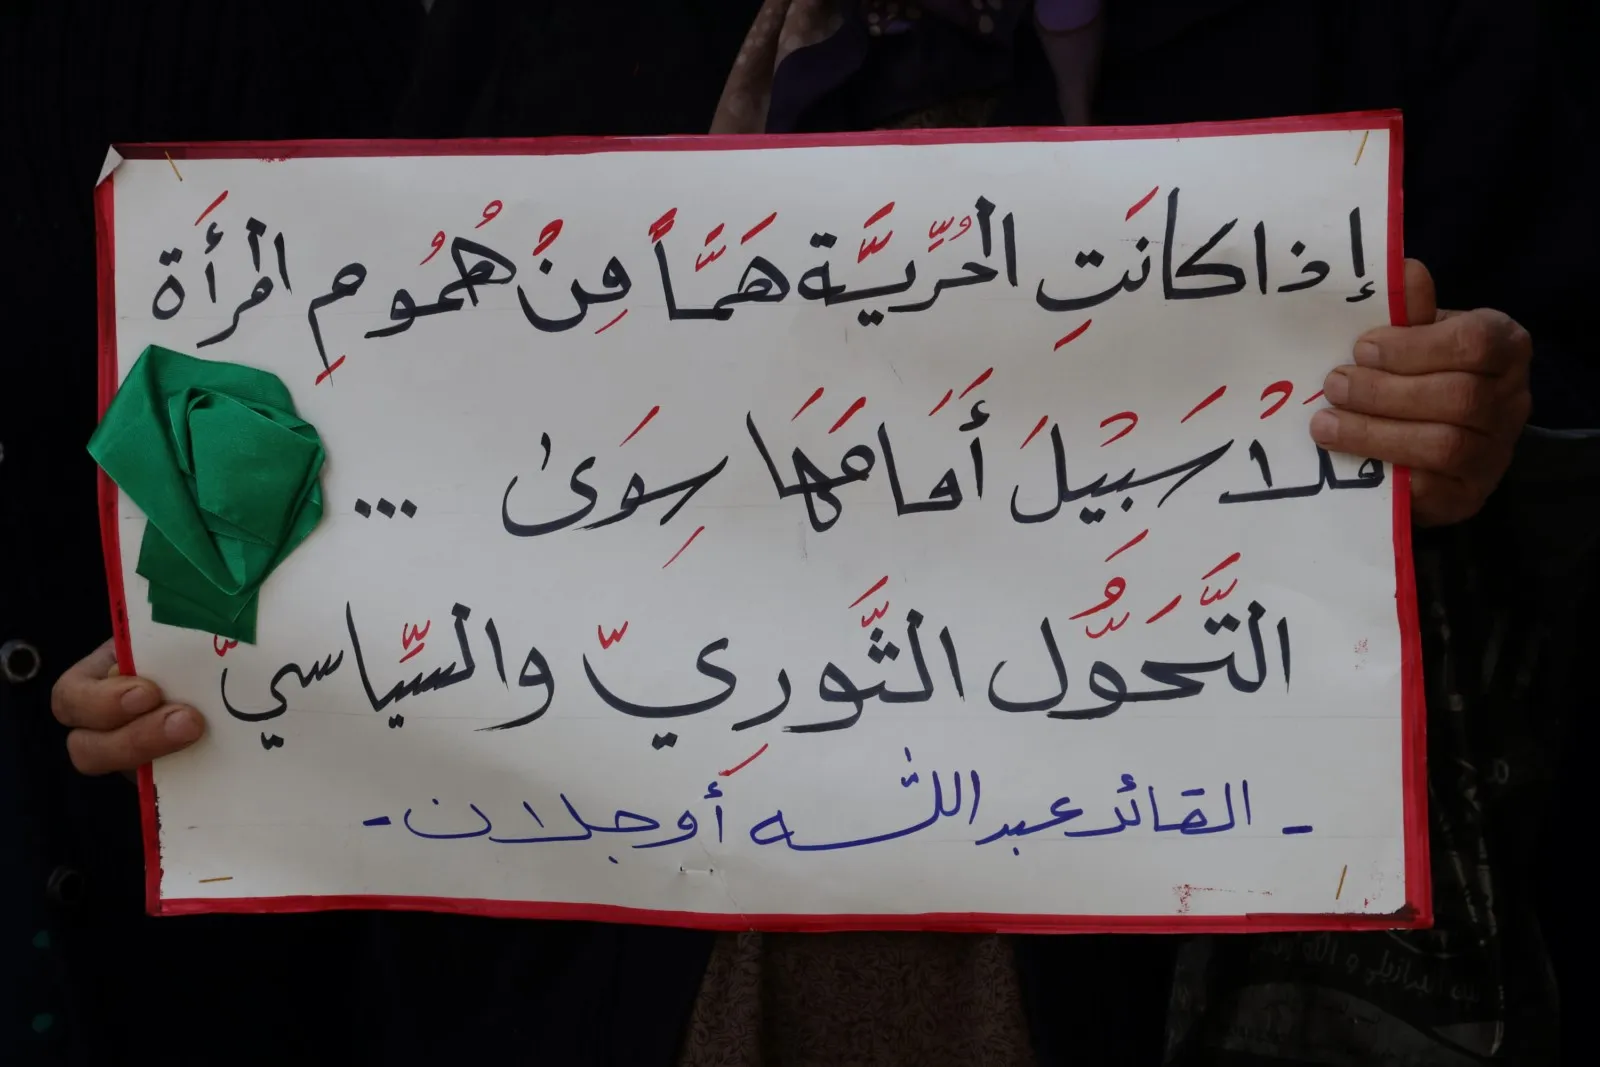 إذا كانَتِ الحُرِّيَّة هَمَّاً مِنْ هُمُومِ امْرأَة
فَلاْ سَبْيلَ أَمَامَهَا سِوَىٰ ...
التَّحَوُّل الثَّورِيّ والسِّيَاسيّ
- القائد عبد اللّٰه أوجلان -